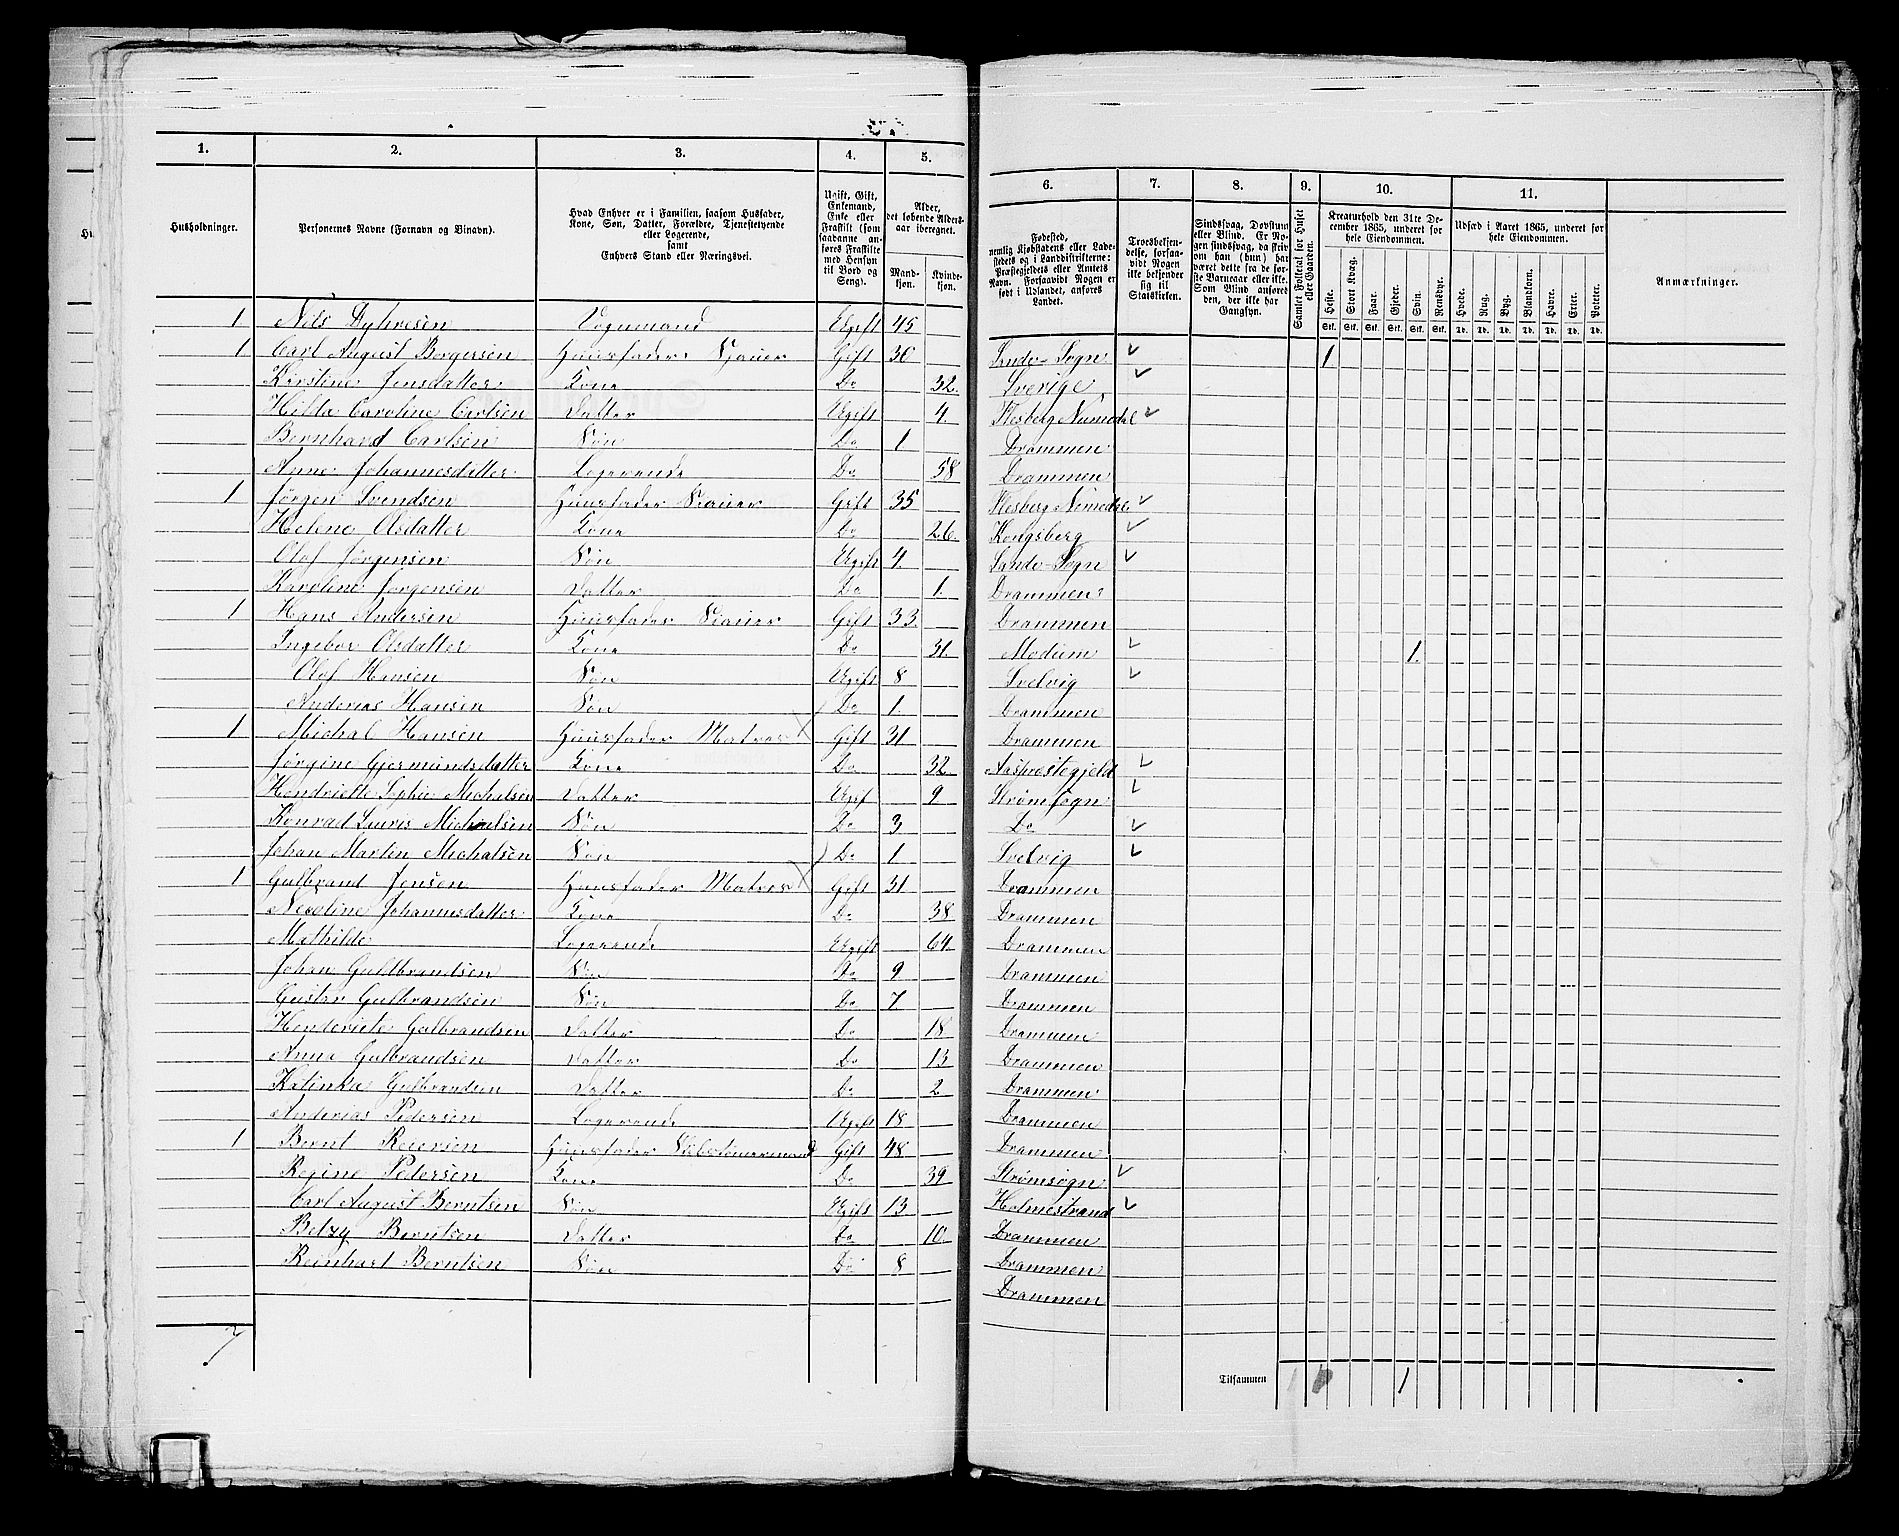 1. 2. 3. 4. 5.
Husholdninger.
Personernes Navne (Fornavn og Binavn).
Hvad Enhver er i Familien, saasom Husfader, Kone, Søn, Datter, Forældre, Tjenestetyende eller Logerende, samt Enhvers Stand eller Næringsvei.
Ugift, Gift, Enkemand, Enke eller Fraskilt (som saadanne anføres Fraskilte med Hensyn til Bord og Seng).
Alder, det løbende Aldersaar iberegnet.
Mandkjøn. Kvindekjøn.
1 Nils Dyhresen Vognmand Ugift 45
1 Carl August Borgersen Huusfader Sjauer Gift 30
Kirstine Jensdatter Kone Do 32.
Hilda Caroline Carlsen Datter Ugift 4.
Bernhard Carlsen Søn Do 1
Anne Johannesdatter Logerende Do 58
1 Jørgen Svendsen Huusfader Sjauer Gift 35
Helene Olsdatter Kone Do 26.
Olof Jørgensen Søn Ugift 4.
Karoline Jørgensen Datter Do 1.
1 Hans Andersen Huusfader Sjauer Gift 33.
Ingebor Olsdatter Kone Do 31.
Olof Hansen Søn Ugift 8
Anderias Hansen Søn Do 1.
1 Michal Hansen Huusfader Matros X Gift 31
Jørgine Gjermundsdatter Kone Do 32.
Hendriette Sophie Michalsen Datter Ugif 9
Konrad Lauris Michalsen Søn Do 3
Johan Martin Michalsen Søn Do 1
1 Gulbrand Jensen Huusfader Matros X Gift 31
Nicoline Johannesdatter Kone Do 38
Mathilde Logerende Ugift 64.
Johan Guldbrandsen Søn Do 9
Gustav Gulbrandsen Søn Do 7
Henderiete Gulbrandsen Datter Do 18
Anna Gulbrandsen Datter Do 13
Katinka Gulbrandsen Datter Do 2
Anderias Pedersen Logerende Ugift 18
1 Bernt Reiersen Huusfader Gift 48
Regine Petersen Kone Do 39
Carl August Berntsen Søn Ugift 13.
Betzy Berntsen Datter Do 10.
Reinhart Berntsen Søn Do 8
7
6. 7. 8. 9. 10. 11.
Fødested, nemlig Kjøbstadens eller Ladestedets og i Landdistrikterne: Præstegjeldets eller Amtets Navn. Forsaavidt Nogen er født i Udlandet, anføres Landet.
Troesbekjendelse, forsaavidt Nogen ikke bekjender sig til Statskirken.
Sindssvag, Døvstum eller Blind. Er Nogen sindssvag, da skriv om han (hun) har været dette fra de første Barneaar eller ikke. Som Blind anføres den, der ikke har Gangsyn.
Samlet Folketal for Huset eller Gaarden.
Kreaturhold den 31te December 1865, underet for hele Eiendommen.
Udsæd i Aaret 1865, underet for hele Eiendommen.
Anmærkninger.
Heste. Stort Kvæg. Faar. Gjeder. Svin. Rensdyr. Hvede. Rug. Byg. Blandkorn. Havre. Erter. Poteter.
Stk. Stk. Stk. Stk. Stk. Stk. Td. Td. Td. Td. Td. Td. Td.
Sande-Sogn ✓ 1.
Sverige ✓
Flesberg Numedal ✓
Drammen
Drammen
Flesberg Numedal ✓
Kongsberg ✓
Sande-Sogn ✓
Drammen
Drammen
Modum ✓ 1.
Svelvig ✓
Drammen
Drammen
Aaspræstegjeld ✓
Strømsogn ✓
Do ✓
Svelvig ✓
Drammen
Drammen
Drammen
Drammen
Drammen
Drammen
Drammen
Drammen
Drammen
Drammen
Strømsogn ✓
Holmestrand ✓
Drammen
Drammen
Drammen
Tilsammen 1 1